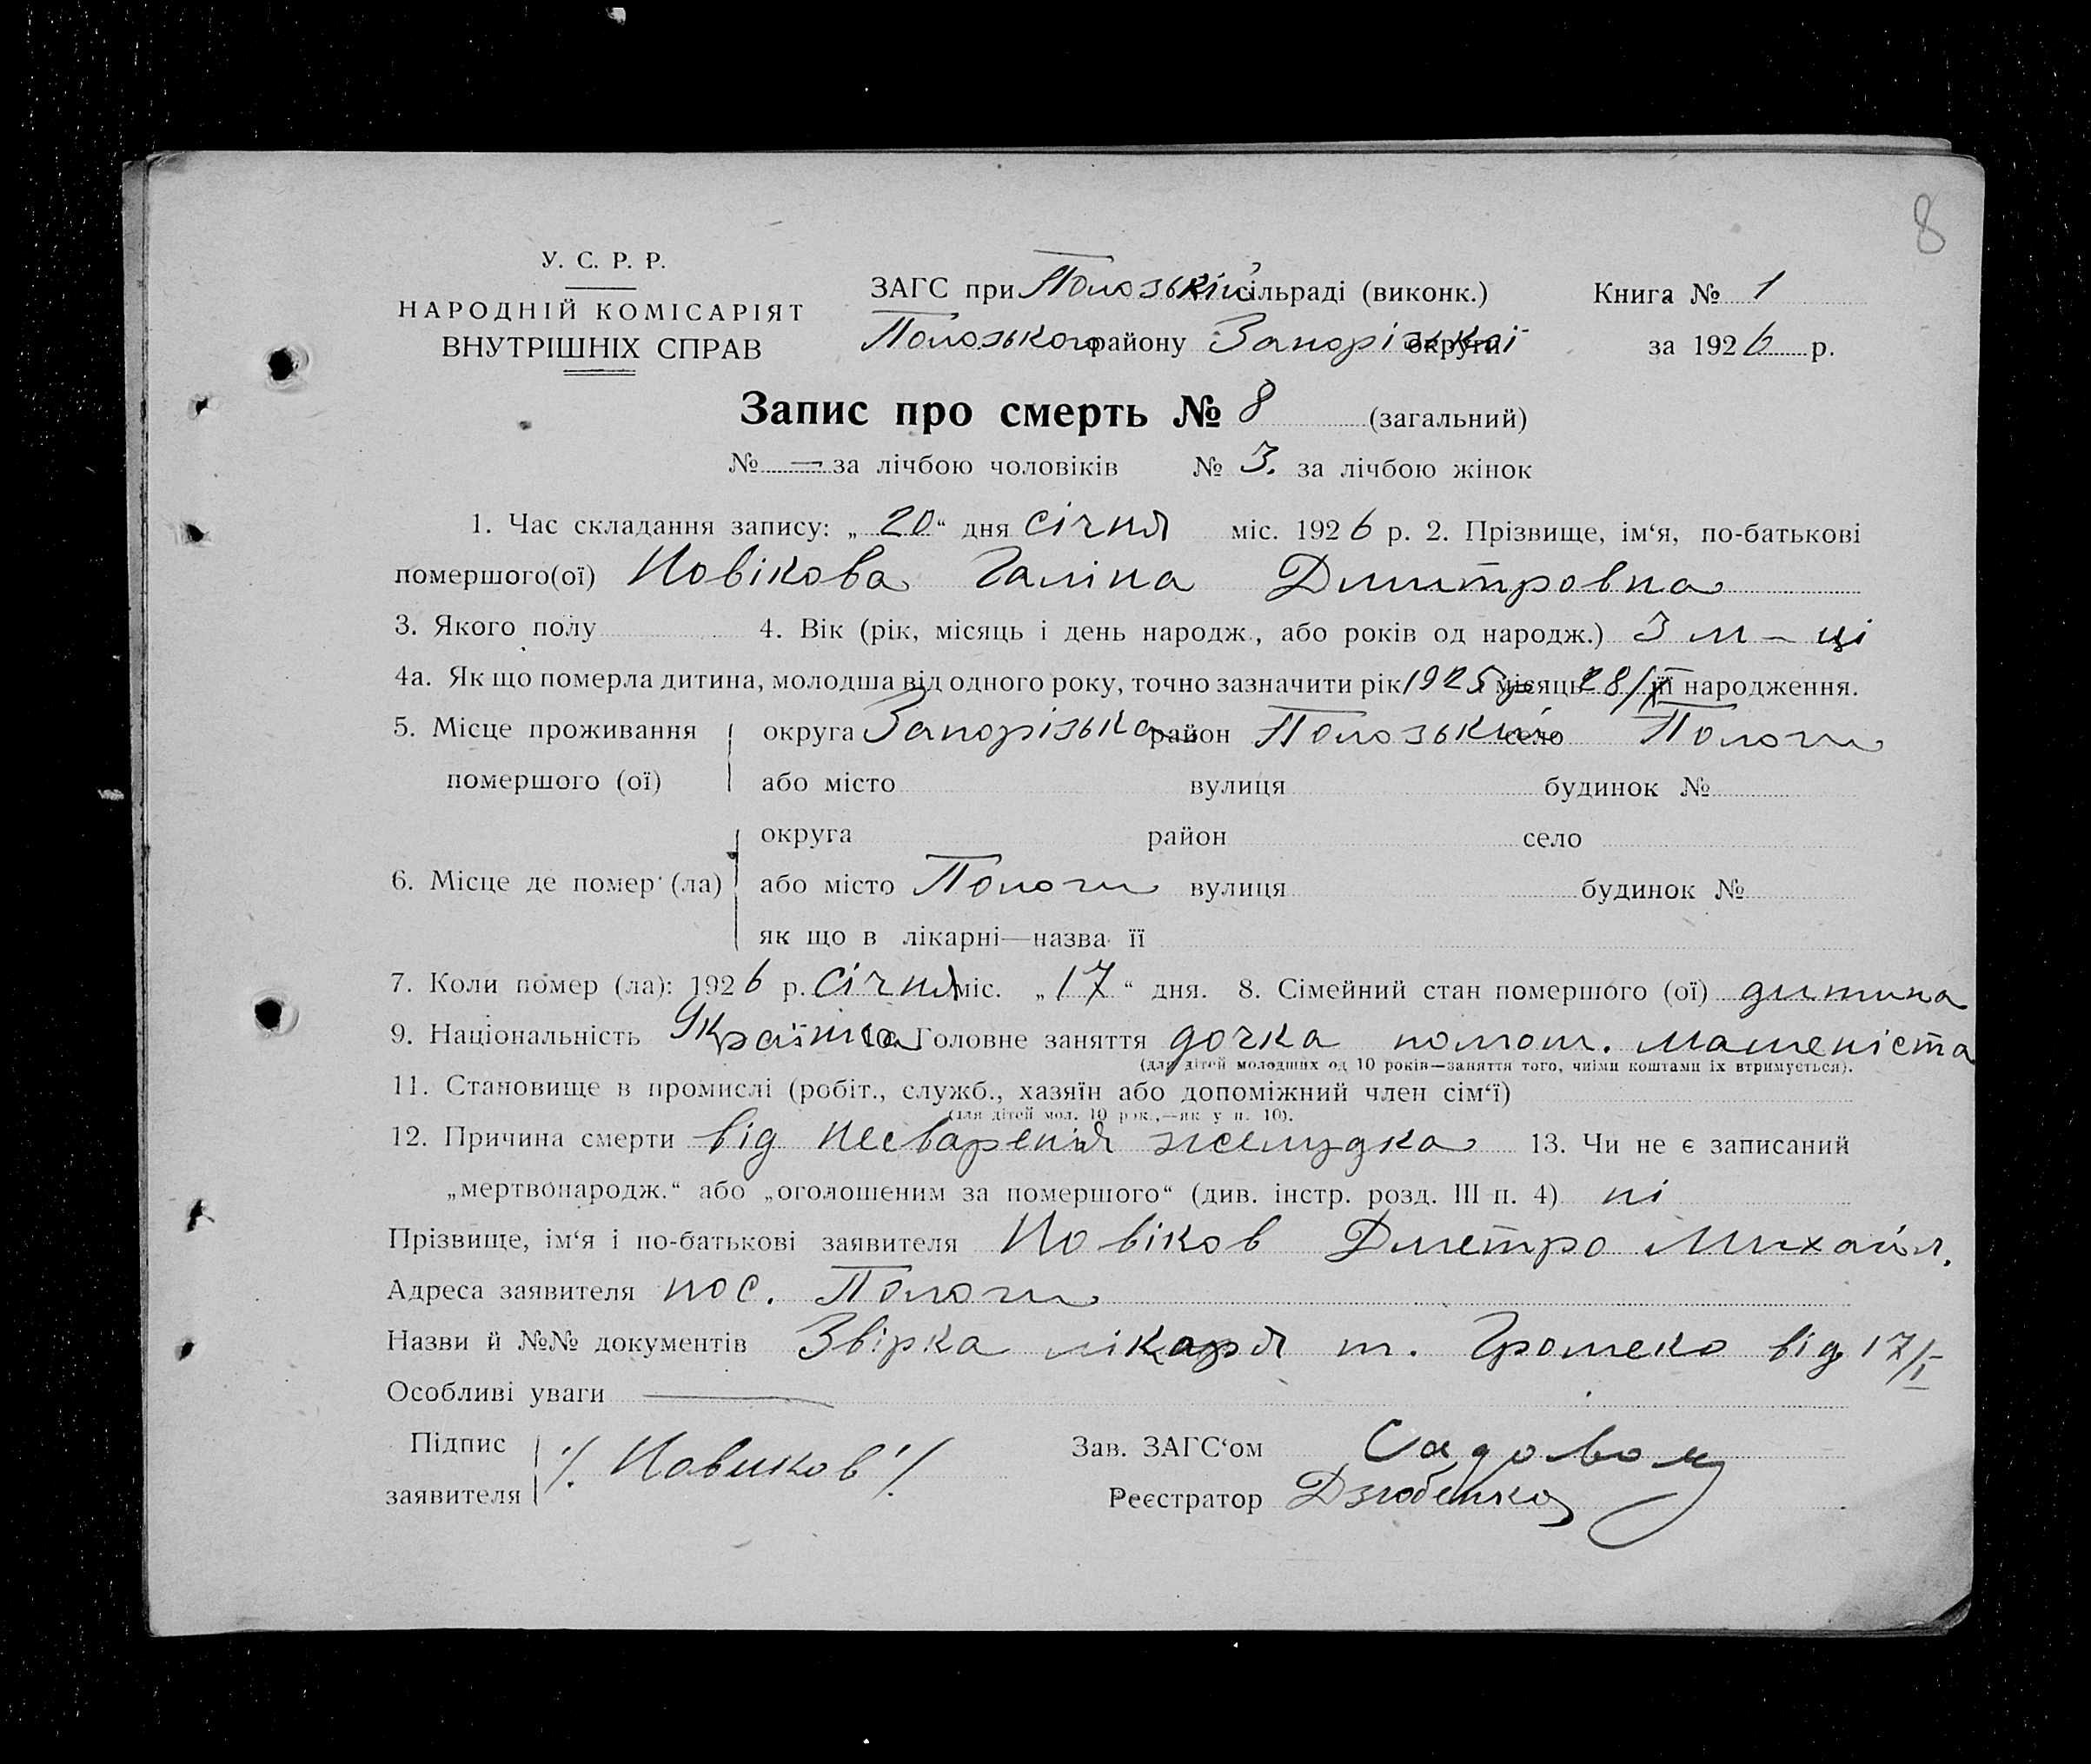 8
У. С. Р. Р.
НАРОДНІЙ КОМІСАРІЯТ
ВНУТРІШНІХ СПРАВ
ЗАГС при Полозькій сільраді (виконк.)
Полозького району Запорізької округи
Книга № 1
за 1926 р.
Запис про смерть № 8 (загальний)
№ — за лічбою чоловіків № 3. за лічбою жінок
1. Час складання запису: „20“ дня січня міс. 1926 р. 2. Прізвище, ім‘я, по-батькові
помершого(ої) Новікова Галіна Дмитровна
3. Якого полу 4. Вік (рік, місяць і день народж., або років од народж.) 3 м-ці
4а. Як що померла дитина, молодша від одного року, точно зазначити рік 1925 місяць 28/ народження.
5. Місце проживання округа Запорізька район Полозький село Пологи
помершого (ої) або місто вулиця будинок №
округа район село
6. Місце де помер (ла) або місто Пологи вулиця будинок №
як що в лікарні—назва її
7. Коли помер (ла): 1926 р. січня міс. „17“ дня. 8. Сімейний стан помершого (ої) дитина
9. Національність Українка 10. Головне заняття дочка помош. машеніста
(для дітей молодших од 10 років—заняття того, чиїми коштами їх втримується).
11. Становище в промислі (робіт., служб., хазяїн або допоміжний член сім‘ї)
(для дітей мол. 10 рок.,—як у п. 10).
12. Причина смерти від несваренія желудка 13. Чи не є записаний
„мертвонародж.“ або „оголошеним за помершого“ (див. інстр. розд. III п. 4) ні
Прізвище, ім‘я і по-батькові заявителя Новіков Дметро Михайл.
Адреса заявителя пос. Пологи
Назви й №№ документів Звірка лікаря т. Громеко від 17/I
Особливі уваги —
Підпис
заявителя /. Новиков ./
Зав. ЗАГС‘ом Садовой
Реєстратор Дзюбенко